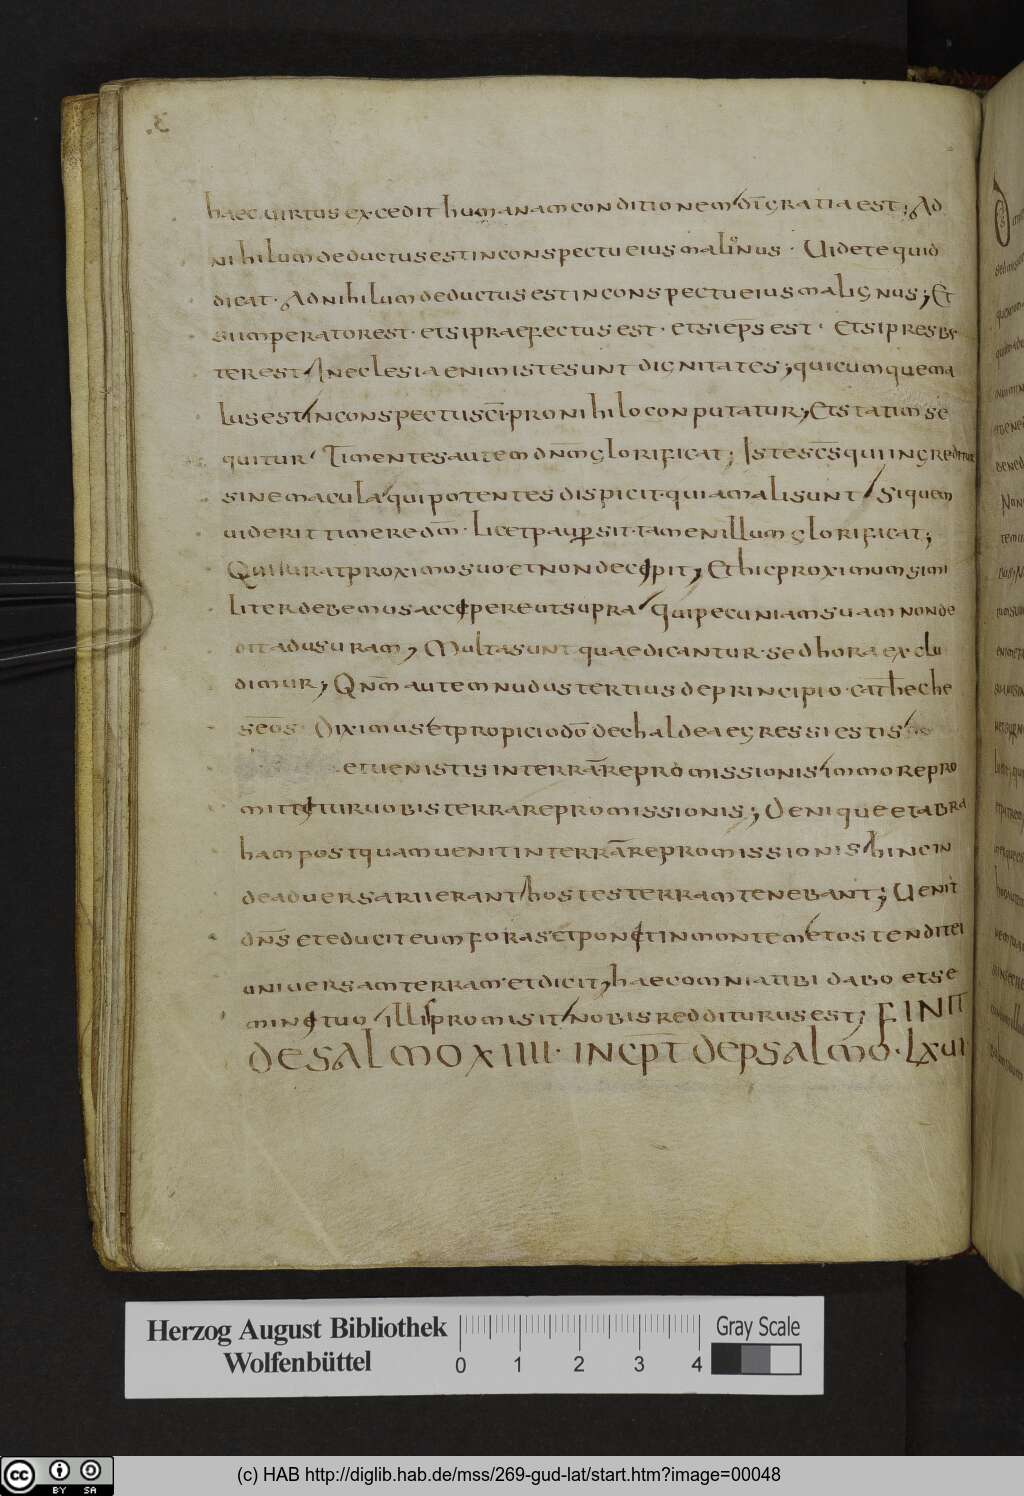 3.
haec uirtus excedit humanam conditionem di̅ gratia est; Ad
nihilum deductus est in conspectu eius malignus · Uidete quid
dicat · Ad nihilum deductus est in conspectu eius malignus; Et
si imperator est · et si praefectus est · et si ep̅s est · Et si presby
ter est In eclesia enim iste sunt dignitates; quicumque ma
lus est in conspectu sc̅i · pro nihilo conputatur; Et statim se
quitur Timentes autem dn̅m glorificat; Iste sc̅s qui ingreditur
sine macula qui potentes dispicit · quia mali sunt Si quem
uiderit timere dm̅ · Licet pauper sit · tamen illum glorificat;
Qui iurat proximo suo et non decipit; Et hic proximum simi
liter debemus accipere ut supra qui pecuniam suam non de
dit ad usuram; Multa sunt quae dicantur · sed hora exclu
dimur; Qn̅m autem nudus tertius de principio · catheche
seos · Diximus et propicio do̅ de chaldea egressi estis
et uenistis in terra̅ repromissionis immo repro
mittitur uobis terra repromissionis; Denique et abra
ham postquam uenit in terra̅ repromissionis hinc in
de aduersarii erant hostes terram tenebant; Uenit
dn̅s et educit eum foras et ponit in montem et ostendit ei
uniuersam terram et dicit; haec omnia tibi dabo et se
mini tuo illis promisit nobis redditurus est; FINIT
DE SALMO XIIII · INCPT̅ DE PSALMO · LXVI
Herzog August Bibliothek
Wolfenbüttel
0 1 2 3 4
Gray Scale
cc BY SA
(c) HAB http://diglib.hab.de/mss/269-gud-lat/start.htm?image=00048